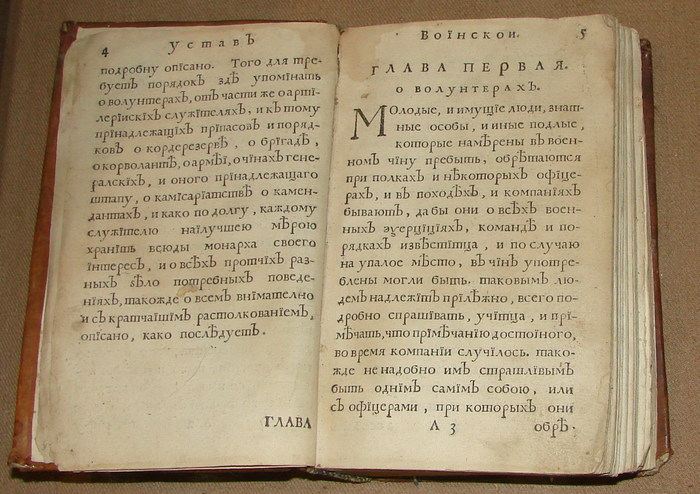 4 УставЪ
подробну опісано. Того для тре-
буетъ порядокЪ здѣ упомінать
о волунтерахЪ, отЪ части же о арті-
лерїискїхЪ служїтеляхЪ, и кЪ тому
прїнадлежащїхЪ прїпасов и поряд-
ковЪ о кордерезервѣ, о брїгадѣ,
о корволантѣ, о армѣї, о чїнахЪ гене-
ралскїхЪ, и оного прїнадлежащего
штапу, о камїсарїатствѣ о камен-
дантахЪ, и како по долгу, каждому
служїтелю наїлучшею мѣрою
хранїть всюды монарха своего
їнтересЪ, и о всѣхЪ протчїхЪ раз-
ныхЪ ѕѣло потребныхЪ поведе-
нїяхЪ, такожде о всемЪ внїмателно
и сЪ кратчаїшїмЪ растолкованїемЪ,
опїсано, како послѣдуетЪ.
ГЛАВА
Воїнскои. 5
ГЛАВА ПЕРВАЯ.
О ВОЛУНТЕРАХЪ.
Молодые, и имущїе люди, знат-
ные особы, и иные подлые,
которые намѣрены вЪ воен-
номЪ чїну пребыть, обрѣтаются
при полкахЪ и нѣкоторыхЪ офїце-
рахЪ, и вЪ походѣхЪ, и компанїяхЪ
бываютЪ, да бы они о всѣхЪ воен-
ныхЪ эѯерцїцїяхЪ, командѣ и по-
рядкахЪ извѣстїтца, и по случаю
на упалое мѣсто, вЪ чїнЪ употре-
блены могли быть. таковымЪ лю-
демЪ надлежїтЪ прїлѣжно, всего по-
дробно спрашївать, учїтца, и прї-
мѣчать, что прїмѣчанїю достоїного,
во время компанїи случїлось. тако-
жде не надобно имЪ страшлївымЪ
быть однїмЪ самїмЪ собою, или
сЪ офїцерами, при которыхЪ они
А 3 обрѣ-